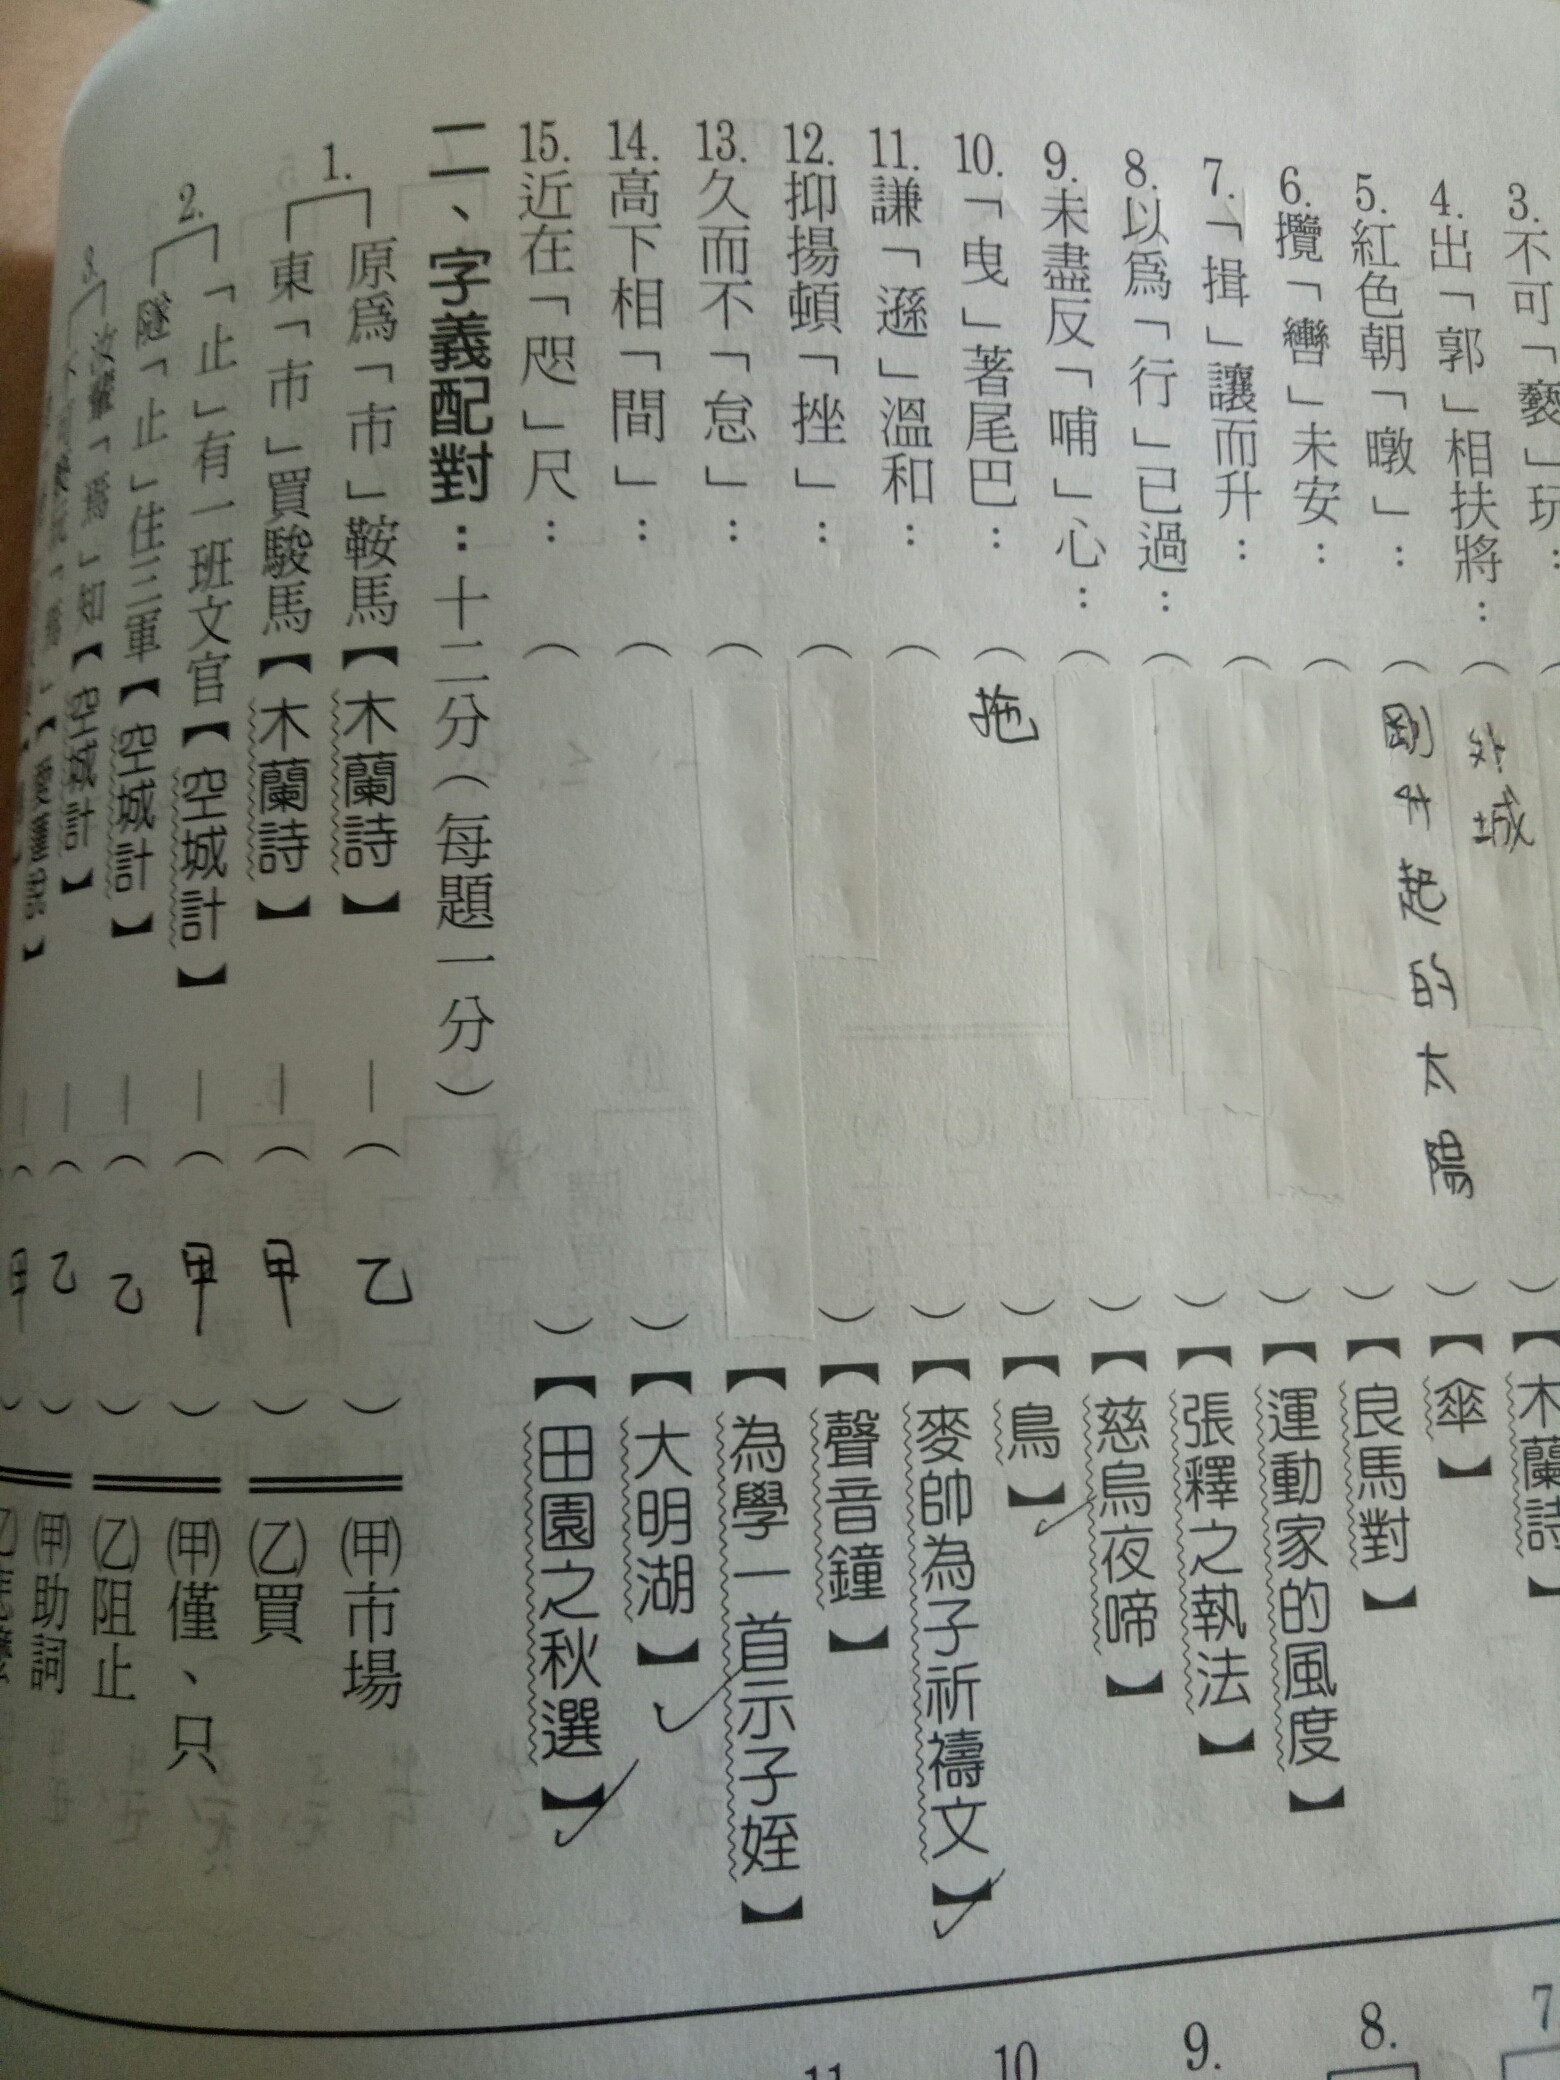 3.不可「褻」玩：
【木蘭詩】
4.出「郭」相扶將：（外城）【傘】
5.紅色朝「暾」：（剛升起的太陽）【良馬對】
6.攬「轡」未安：（
）【運動家的風度】
7.「揖」讓而升：（
）【張釋之執法】
8.以為「行」已過：（
）【慈烏夜啼】
9.未盡反「哺」心：（
）【鳥】
10.「曳」著尾巴：（拖
）【麥帥為子祈禱文】
11.謙「遜」溫和：（
）【聲音鐘】
12.抑揚頓「挫」：（
【為學一首示子姪】
13.久而不「怠」：（
）【大明湖】
14.高下相「間」：（
）【田園之秋選】
15.近在「咫」尺：（
二、字義配對：十二分（每題一分）
1.
原為「市」鞍馬【木蘭詩】—（乙）
㈥市場
東「市」買駿馬【木蘭詩】—（甲）
㈡買
2.
「止」有一班文官【空城計】—（甲）
(甲)僅、只
隧「止」住三軍【空城計】—（乙）
(乙)阻止
3.
汝輩「焉」知【空城計】—（乙）
(甲)助詞
7
8.
9.
10
11